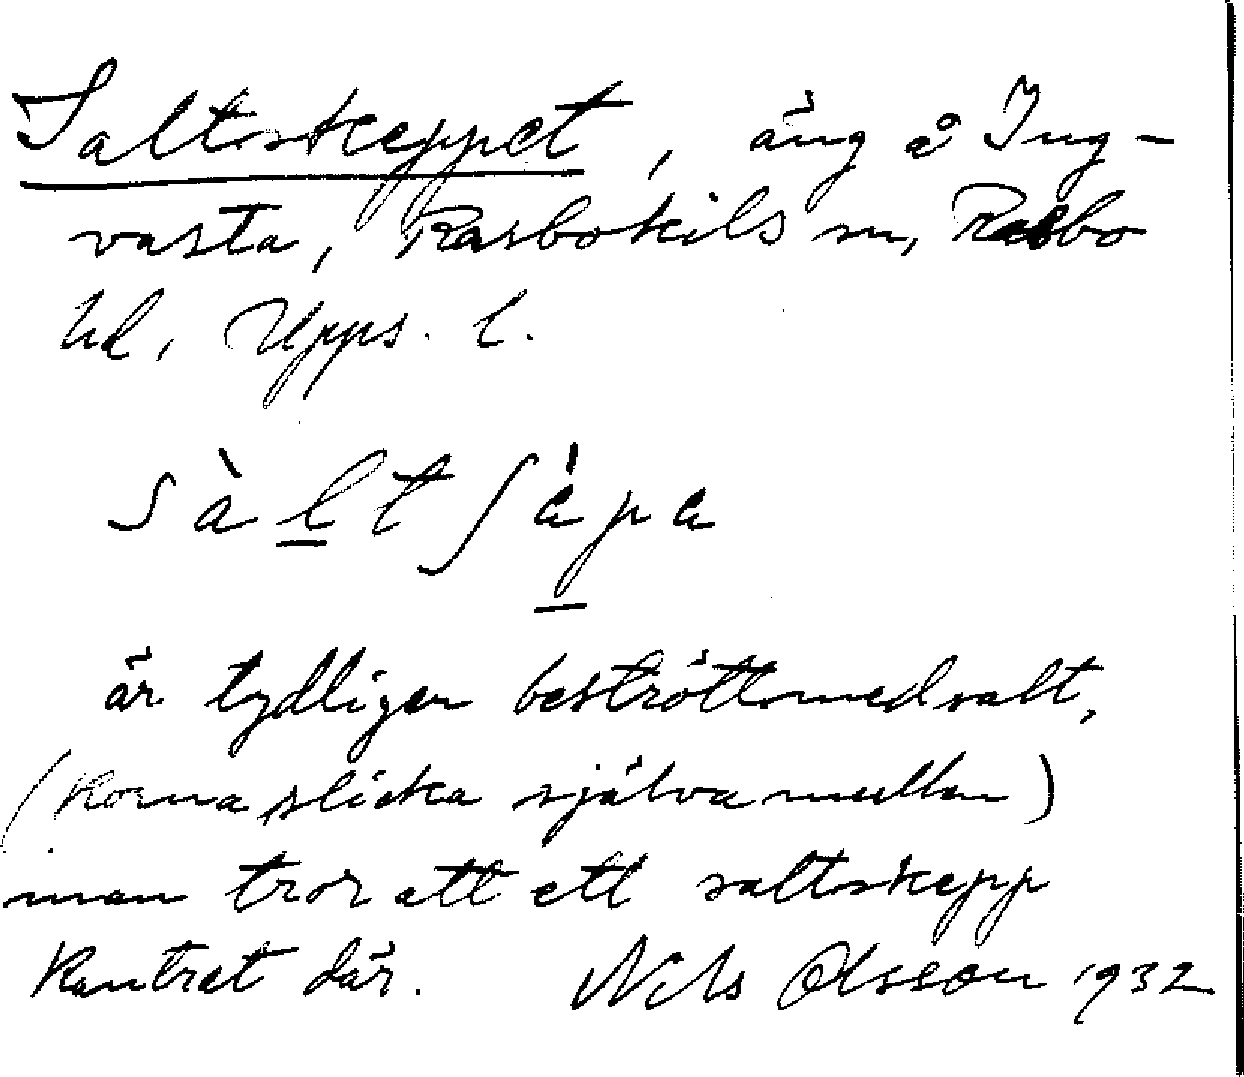 Saltskeppet, äng å Ing-
vasta, Rasbokils sn, Rasbo
hd, Upps. l.
sàltʃápa
är tydligen bestrött med salt,
(Korna slicka själva mullen)
man tror att ett saltskepp
kantret där. Nils Olsson 1932